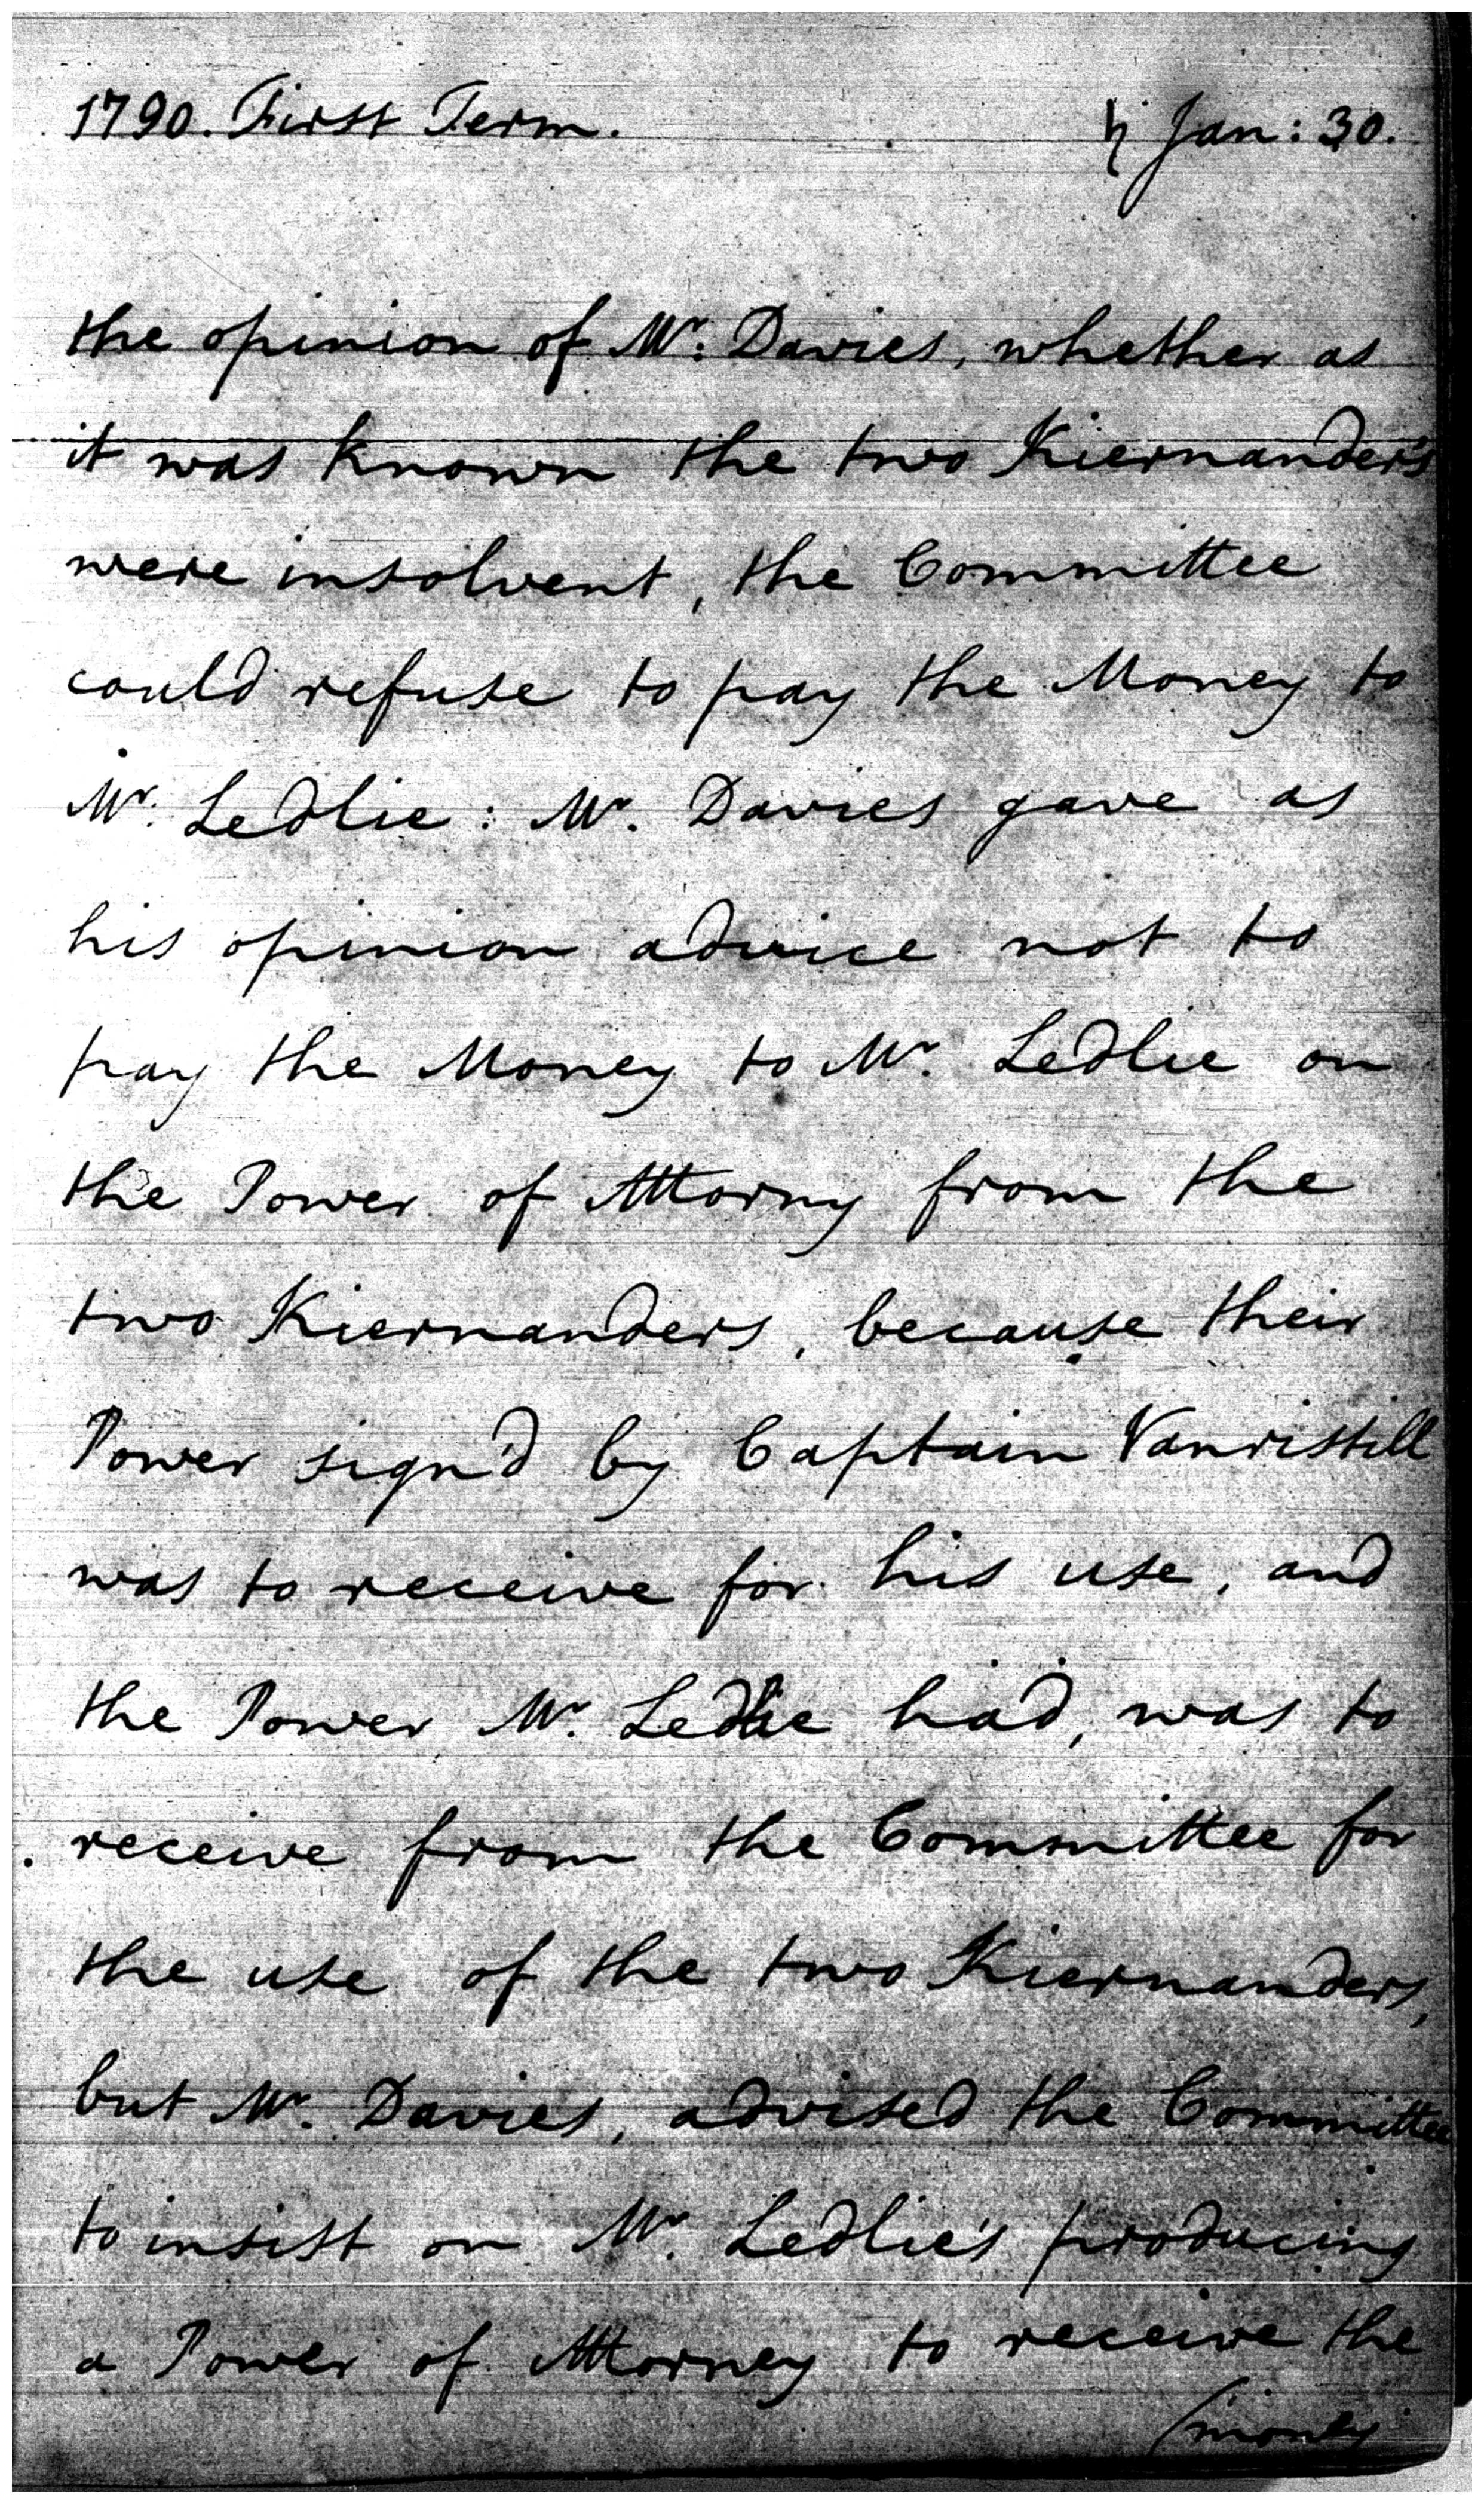 1790. First Term. ♄ Jan: 30.
the opinion of Mr: Davies, whether as
it was known the two Kiernander's
were insolvent, the Committee
could refuse to pay the Money to
Mr. Ledlie: Mr. Davies gave as
his opinion advice not to
pay the Money to Mr. Ledlie on
the Power of Attorny from the
two Kiernanders, because their
Power sign'd by Captain Vanristill
was to receive for his use, and
the Power Mr. Ledlie had, was to
receive from the Committee for
the use of the two Kiernanders,
but Mr. Davies, advised the Committee
to insist on Mr. Ledlie's producing
a Power of Attorney to receive the
(money